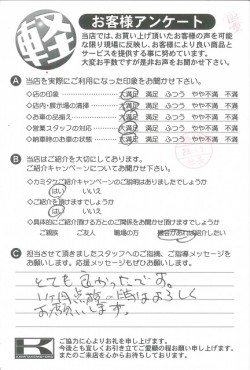 軽
お客様アンケート
当店では、お買い上げ頂いたお客様の声を可能
な限り現場に反映し、お客様により良い商品と
サービスを提供する事に努めています。
大変お手数ですが是非お声をお聞かせ下さい。
A 当店を実際にご利用になった印象をお聞かせ下さい。
◇店の印象 大満足 満足 ふつう やや不満 不満
◇店内・展示場の清掃 大満足 満足 ふつう やや不満 不満
◇お車の品揃え 大満足 満足 ふつう やや不満 不満
◇営業スタッフの対応 大満足 満足 ふつう やや不満 不満
◇納車時のお車の状態 大満足 満足 ふつう やや不満 不満
B 当店はご紹介を大切にしております。
ご紹介キャンペーンについてお聞かせ下さい。
◇カミタケご紹介キャンペーンのご説明はありましたでしょうか
はい いいえ
◇ご紹介を頂けますでしょうか
はい いいえ
◇具体的にご紹介頂ける方とのご関係をお聞かせ頂けますでしょうか
ご親族 ご友人 職場の方 機会があれば紹介したい
C 担当させて頂きましたスタッフへのご指摘、ご指導メッセージを
お願いします。応援メッセージもぜひお願いします。
とても良かったです。
1ヶ月点検の時はよろしく
お願いします。
K
ご協力に心よりお礼を申し上げます。
今後とも宜しくお引き立てご愛顧の程お願い申し上げます。
またのご来店を心からお待ちしております。